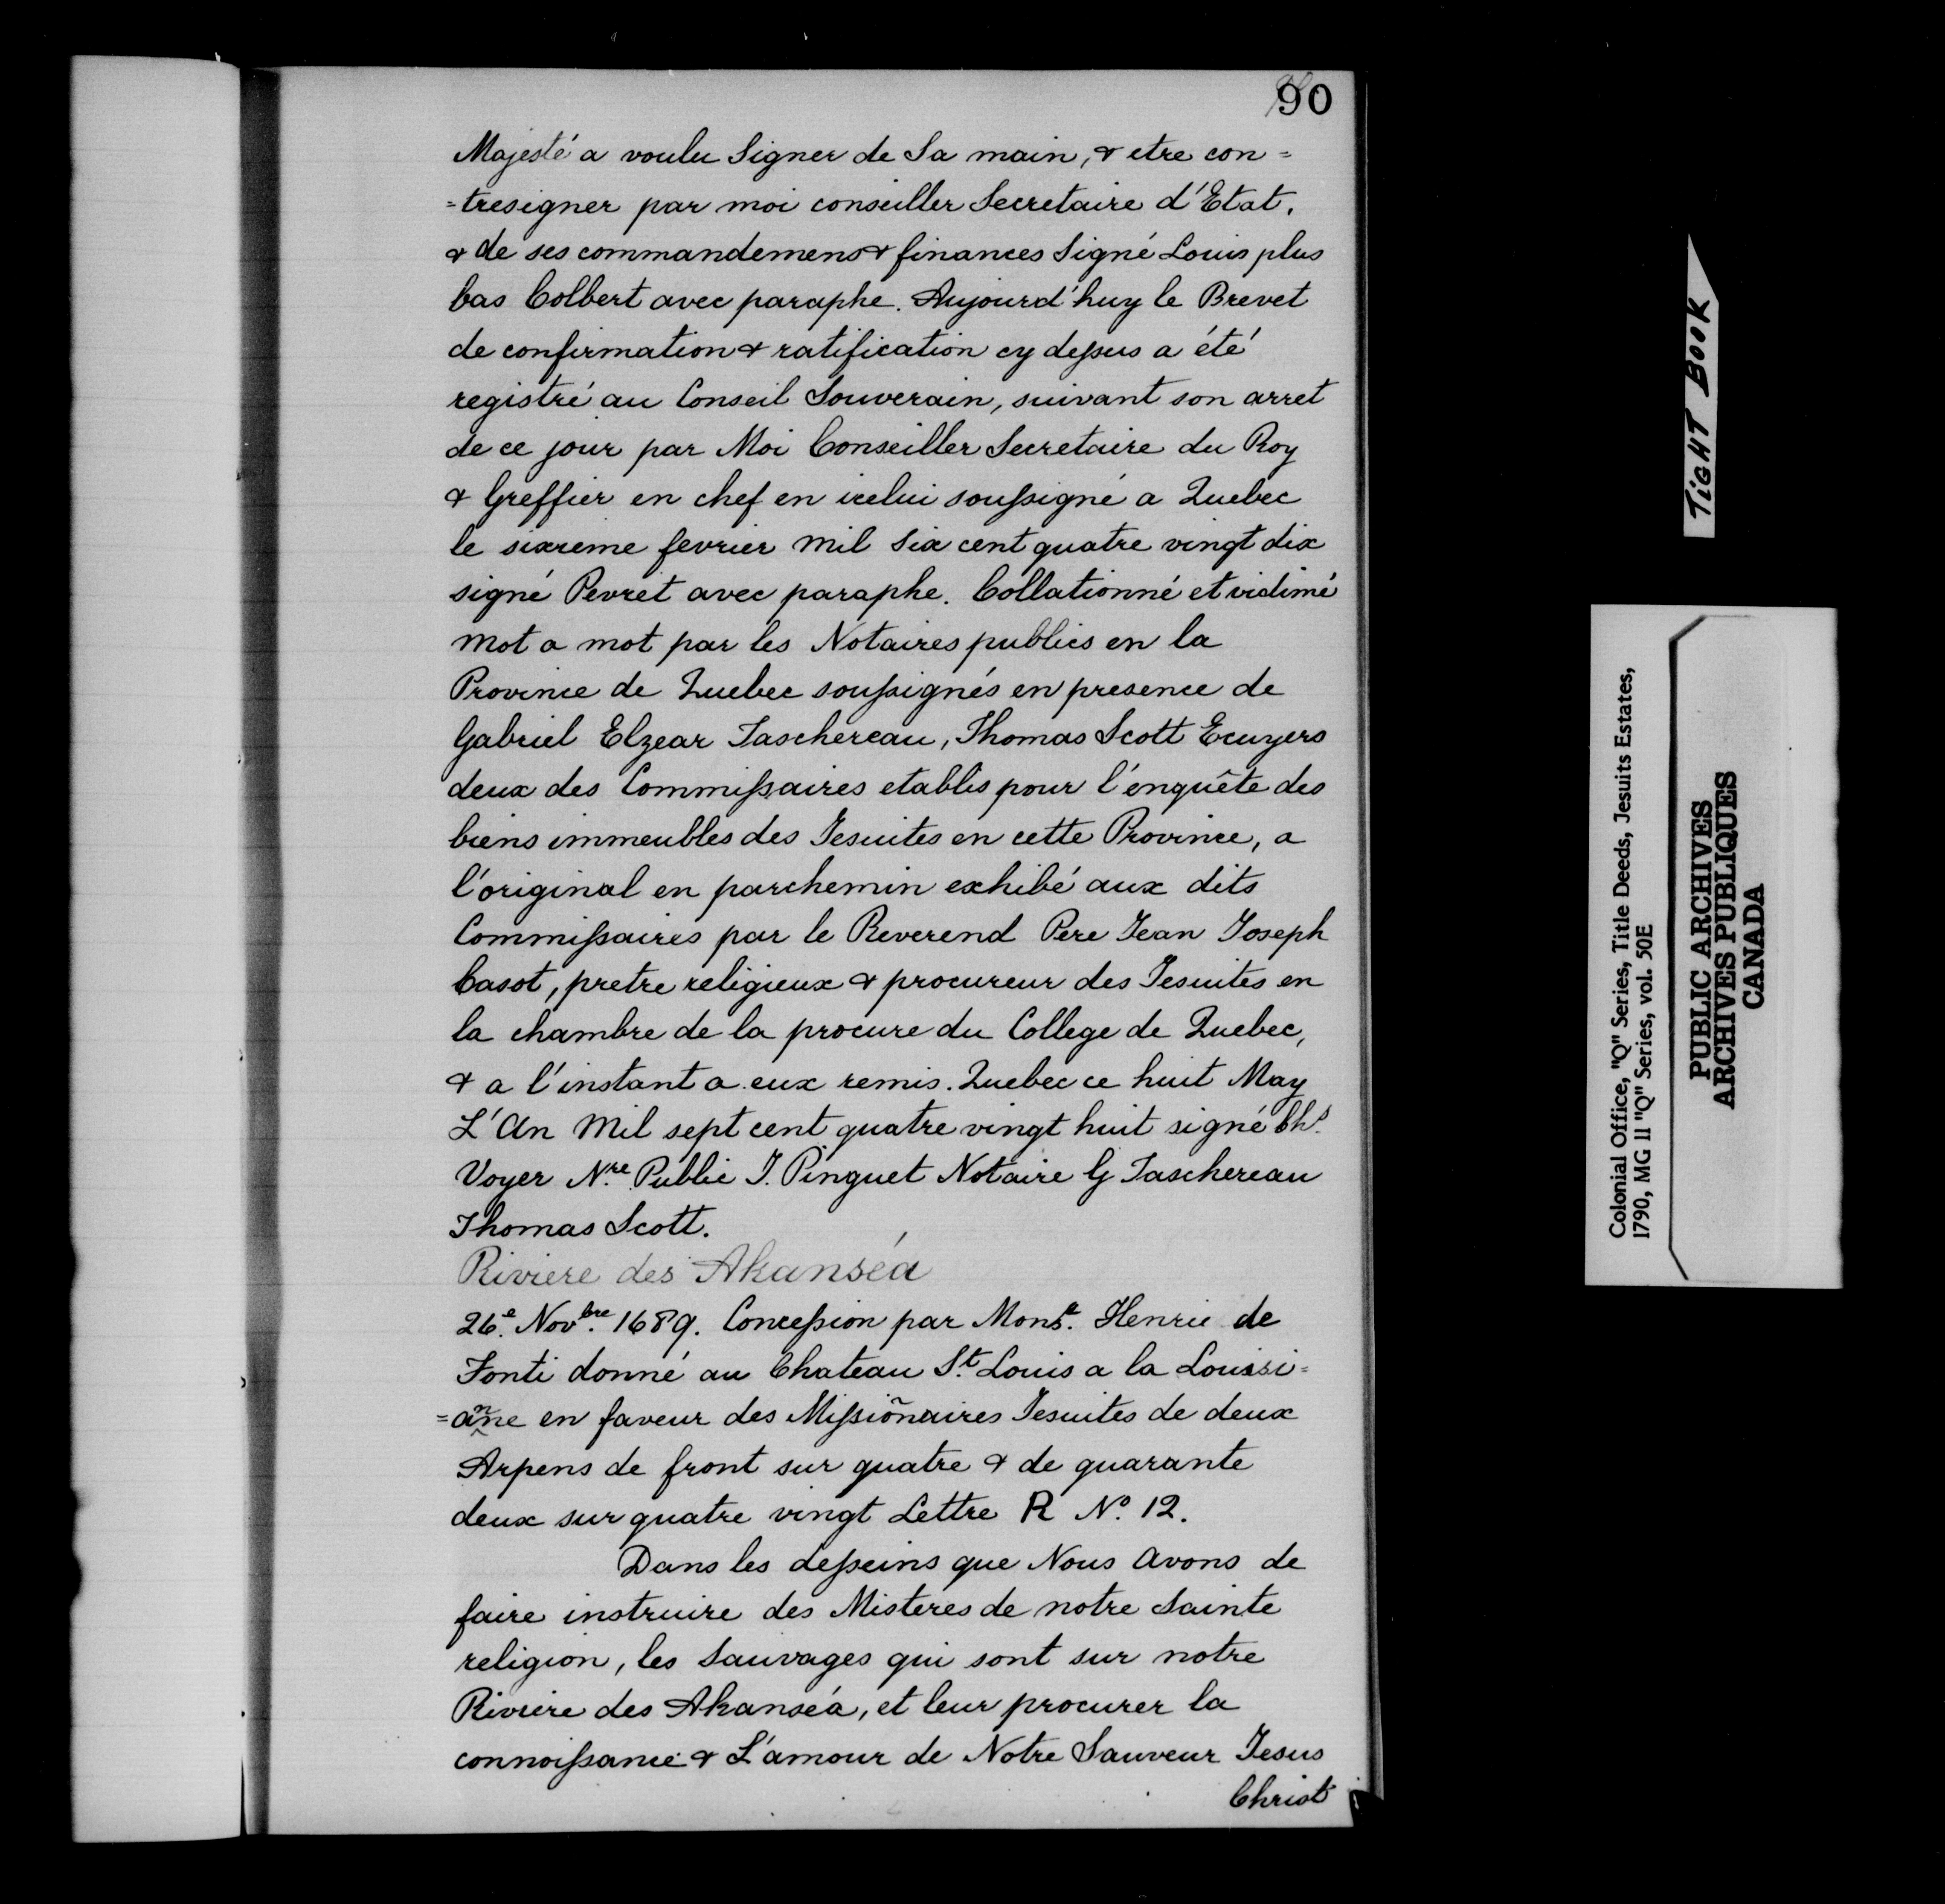 90
Majesté a voulu Signer de Sa main, & etre con=
=tresigner par moi conseiller Secretaire d'Etat.
& de ses commandemens & finances Signé Louis plus
bas Colbert avec paraphe. Aujourd'huy le Brevet
de confirmation & ratification cy deſsus a été
registré au Conseil Souverain, suivant son arret
de ce jour par Moi Conseiller Secretaire du Roy
& Greffier en chef en icelui souſsigné a Quebec
le sixieme fevrier mil Six cent quatre vingt dix
signé Pevret avec paraphe. Collationné et vidimé
mot a mot par les Notaires publics en la
Province de Quebec souſsignés en presence de
Gabriel Elzear Taschereau, Thomas Scott Ecuyers
deux des Commiſsaires etablis pour l'enquête des
biens immeubles des Jesuites en cette Province, a
l'original en parchemin exhibé aux dits
Commiſsaires par le Reverend Pere Jean Joseph
Casot, pretre religieux & procureur des Jesuites en
la chambre de la procure du College de Quebec,
& a l'instant a eux remis. Quebec ce huit May
L'An Mil sept cent quatre vingt huit signé Chs.
Voyer Nre. Public J. Pinguet Notaire G Taschereau
Thomas Scott.
Riviere des Akanséa
26e. Novbre. 1689. Conceſsion par Monsr. Henrie de
Tonti donné au Chateau St. Louis a la Louisi=
=anne en faveur des Miſsioñaires Jesuites de deux
Arpens de front sur quatre & de quarante
deux sur quatre vingt Lettre R No. 12.
Dans les deſseins que Nous Avons de
faire instruire des Misteres de notre Sainte
religion, les Sauvages qui sont sur notre
Riviere des Akanséa, et leur procurer la
connoiſsance & L'amour de Notre Sauveur Jesus
Christ
TIGHT BOOK
Colonial Office, "Q" Series, Title Deeds, Jesuits Estates,
1790, MG 11 "Q" Series, vol. 50E
PUBLIC ARCHIVES
ARCHIVES PUBLIQUES
CANADA